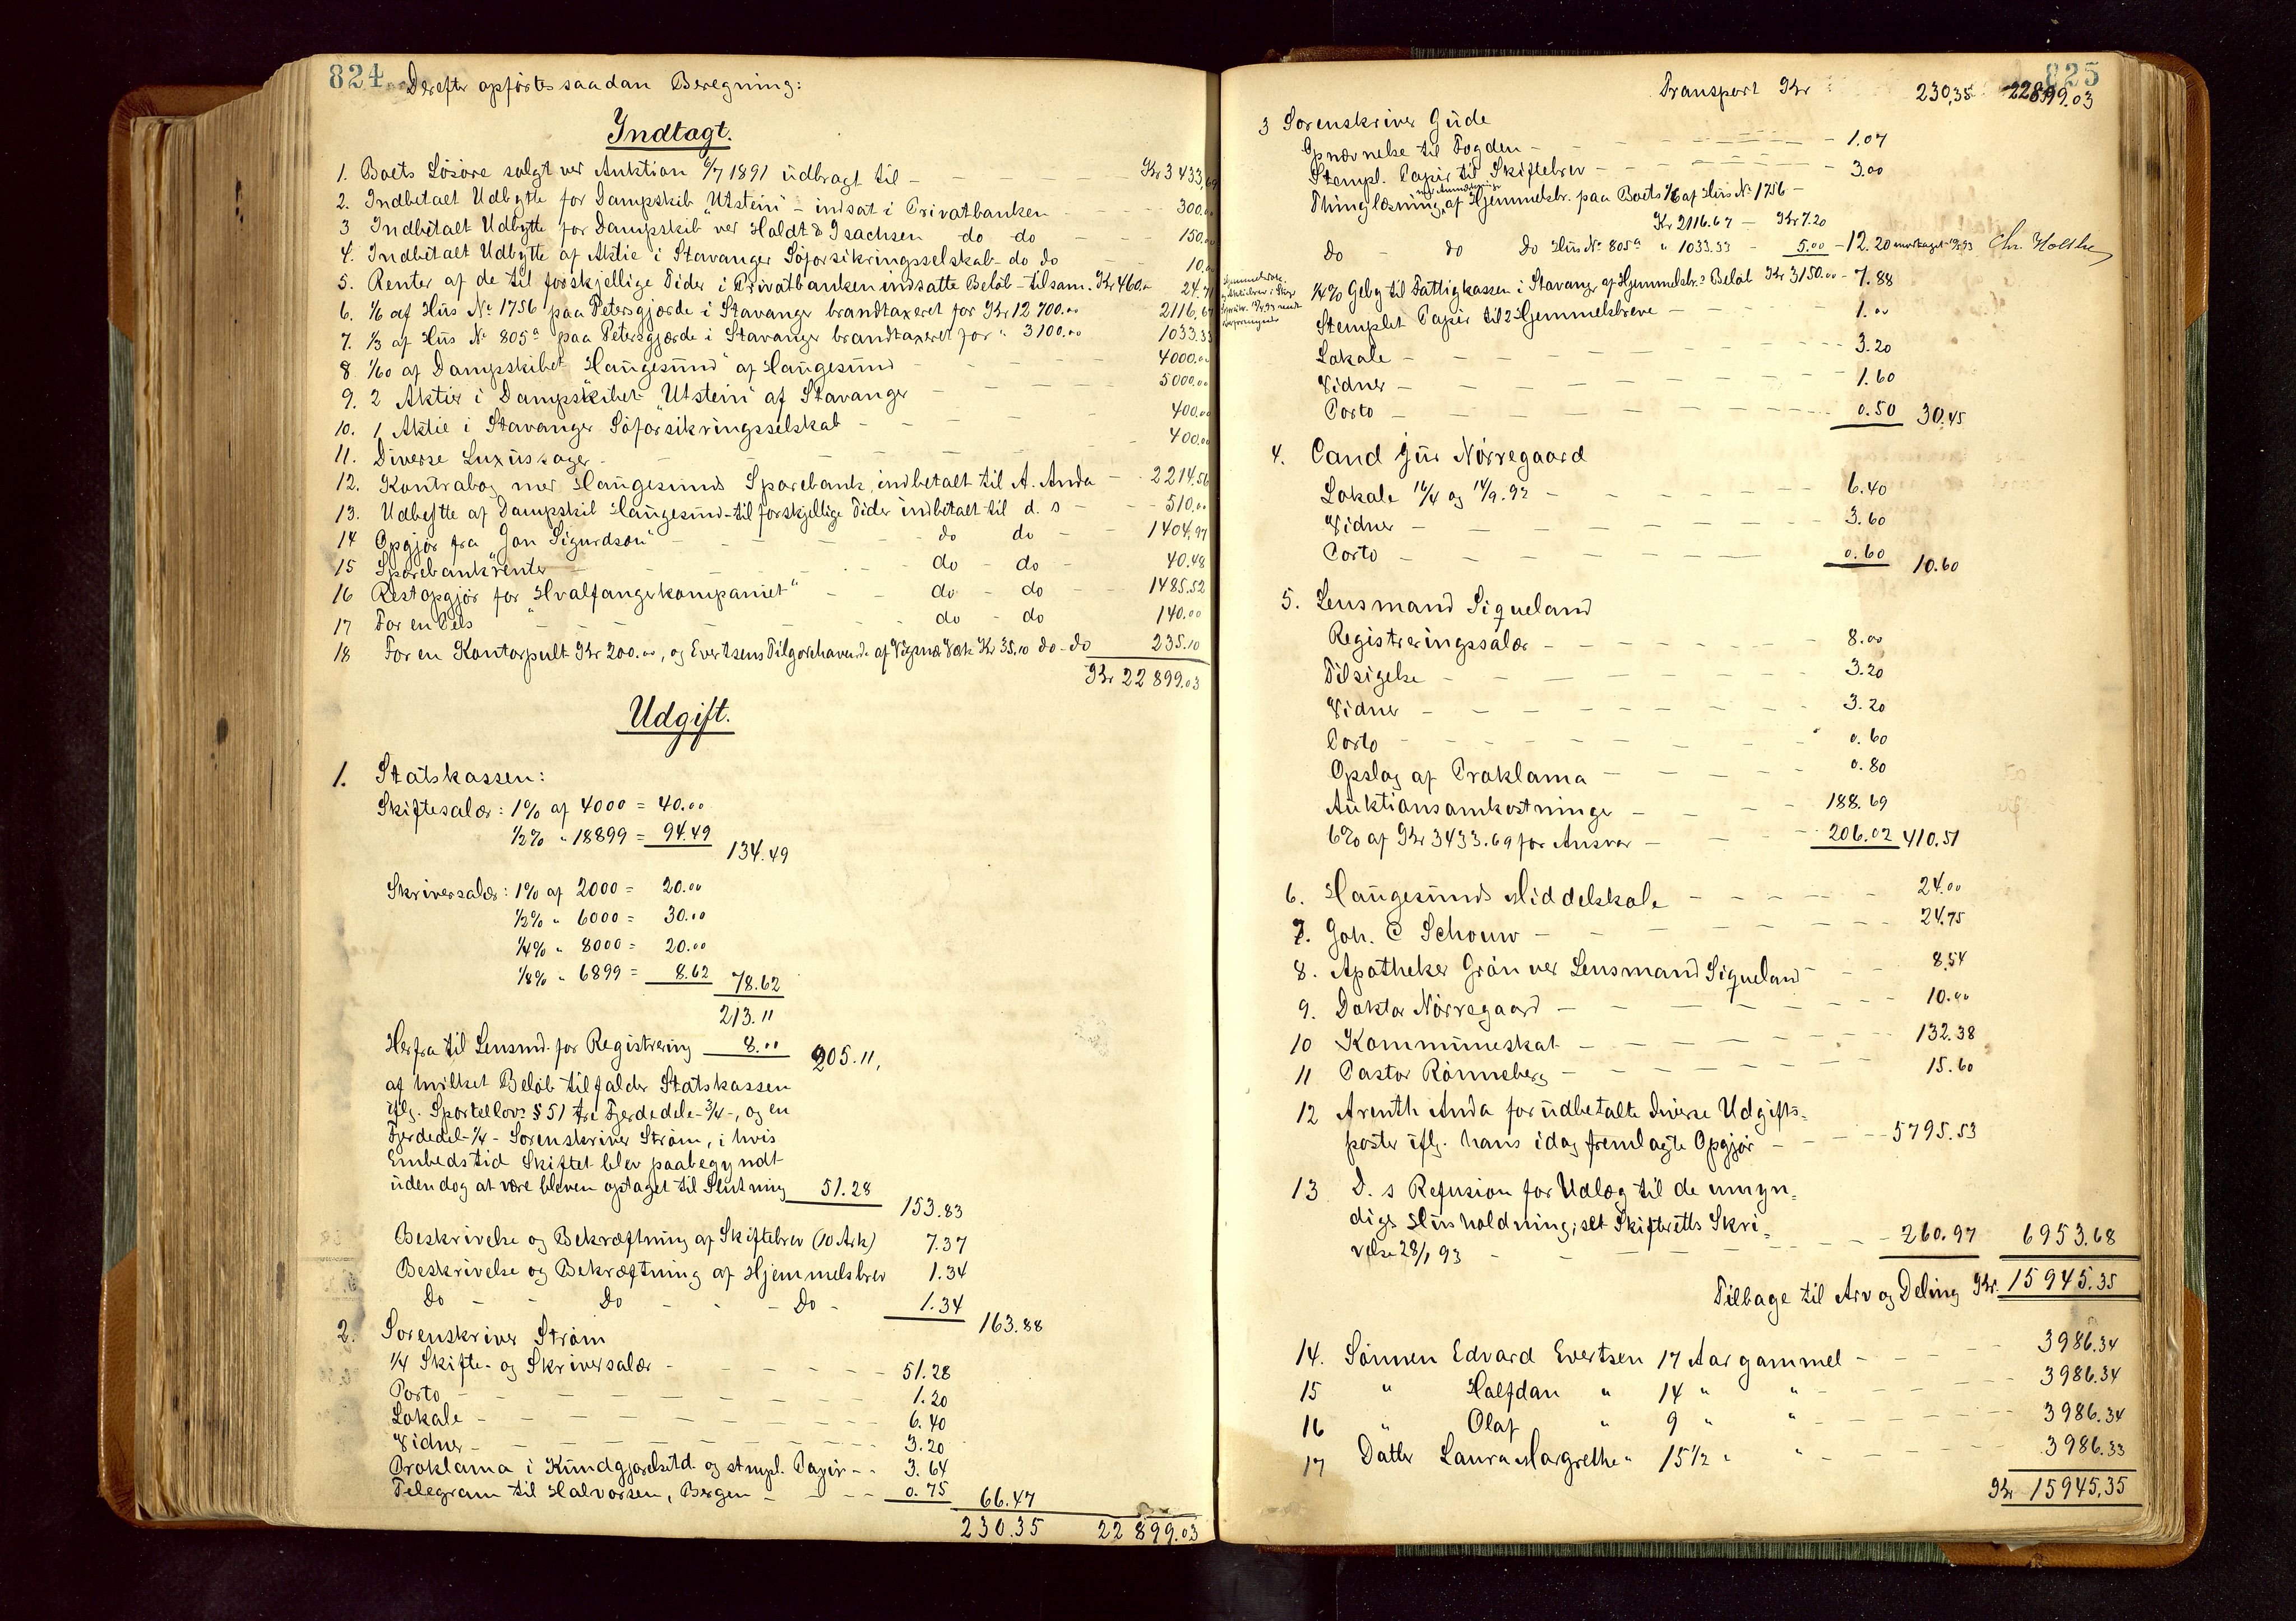 824
Derefter opførtes saadan Beregning:
Indtagt.
1. Boets Løsøre solgt ver Auktion 6/7 1891 udbragt til - Kr 3433,69
2. Indbetalt Udbytte for Dampskib "Utstein" - indsat i Privatbanken - 300.00
3 Indbetalt Udbytte for Dampskib ver Holdt & Isachsen do do - 150.00
4. Indbetalt Udbytte af Aktie i Stavanger Søforsikringsselskab - do do - 10.00
5. Renter af de til forskjellige Tider i Privatbanken indsatte Beløb - tilsam. Kr 460.00 24.71
6. 1/6 af Hus No 1756 paa Petersgjerde i Stavanger brandtaxeret for Kr 12 700.00 2116,67
7. 1/3 af Hus No 805a paa Petersgjærde i Stavanger brandtaxeret for " 3100.00 1033.33
8. 1/60 af Dampskibet "Haugesund" af Haugesund - 4000.00
9. 2 Aktier i Dampskibet "Utstein" af Stavanger - 5000.00
10. 1 Aktie i Stavanger Søforsikringsselskab - 400.00
11. Diverse Luxussager - 400.00
12. Kontrabog mer Haugesunds Sparebank, indbetalt til A. Anda - 2214.56
13. Udbytte af Dampskib Haugesund - til forskjellige Tider indbetalt til d. s - 510.00
14 Opgjør fra "Jon Sigurdson" - do do - 1404,97
15 Sparebankrenter - do - do - 40.48
16 Restopgjør for "Hvalfangerkompaniet" - do - do - 1485.52
17 For en Pels - do - do 140.00
18 For en Kontorpult Kr 200.00, og Evertsens Tilgodehavende af Vigsnæs Værk Kr 35.10 do - do 235.10
Kr 22 899.03
Udgift.
1. Statskassen:
Skiftesalær: 1% af 4000 = 40.00
1/2% " 18899 = 94.49
134.49
Skriversalær: 1% af 2000 = 20.00
1/2% " 6000 = 30.00
1/4% " 8000 = 20.00
1/8% " 6899 = 8.62 78.62
213.11
Herfra til Lensmd. for Registrering 8.00 205.11,
af hvilket Beløb tilfalder Statskassen
iflg. Sportellovs § 51 tre Fjerdedele - 3/4 -, og en
Fjerdedel - 1/4 - Sorenskriver Strøm, i hvis
Embedstid Skiftet blev paabegyndt
uden dog at være bleven optaget til Slutning 51.28
153.83
Beskrivelse og Bekræftning af Skiftebrev (10 Ark) 7.37
Beskrivelse og Bekræftning af Hjemmelsbrev 1.34
Do - Do - Do - 1.34
163.88
2. Sorenskriver Strøm
1/4 Skifte- og Skriversalær - 51.28
Porto - 1.20
Lokale - 6.40
Vidner - 3.20
Proklama i Kundgjørelsetd. og stmpl. Papir - 3.64
Telegram til Halvorsen, Bergen - 0.75 66.47
230.35 22 899.03
825
Transport Kr 230,35 22899.03
3 Sorenskriver Gude
Opnævnelse til Fogden - 1.07
Stempl. Papir til Skiftebrev - 3.00
Thinglæsning af Hjemmelsbr. paa Boets 1/6 af Hus No 1756 -
Kr 2116.67 - Kr 7.20
do do do Hus No 805a " 1033.33 - 5.00 - 12.20 Chr. Holthe
1/4% Geby til Fattigkassen i Stavanger af Hjemmelsbr.s Beløb Kr 3150.00 - 7.88
Stemplet Papir til 2 Hjemmelsbreve - 1.00
Lokale - 3.20
Vidner - 1.60
Porto - 0.50 30.45
4. Cand jur Nørregaard
Lokale 16/4 og 14/9.92 - 6.40
Vidner - 3.60
Porto - 0.60 10.60
5. Lensmand Siqueland
Registreringssalær - 8.00
Tilsigelse - 3.20
Vidner - 3.20
Porto - 0.60
Opslag af Proklama - 0.80
Auktionsomkostninger - 188.69
6% af Kr 3433.69 for Ansvar - 206.02 410.51
6. Haugesunds Middelskole - 24.00
7. Joh. C Schouw - 24.75
8. Apotheker Grøn ver Lensmand Siqueland - 8.54
9. Doktor Nørregaard - 10.00
10 Kommuneskat - 132.38
11 Pastor Rønneberg - 15.60
12 Arenth Anda for udbetalte diverse Udgifts-
poster iflg. hans idag fremlagte Opgjør - 5795.53
13 D. s Refusion for Udlæg til de umyn-
diges Husholdning, se Skifterettens Skri-
velse 28/1 93 - 260.97 6953.68
Tilbage til Arv og Deling Kr. 15945.35
14. Sønnen Edvard Evertsen 17 Aar gammel - 3986.34
15 " Halfdan " 14 " " - 3986.34
16 " Olaf " 9 " " - 3986.34
17 Datter Laura Margrethe " 15 1/2 " " - 3986.33
Kr 15945,35